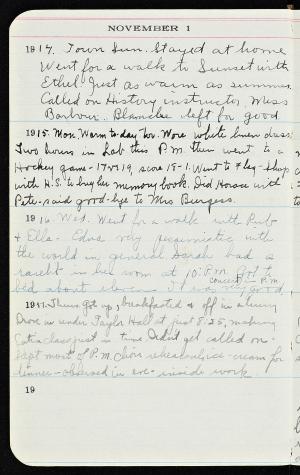 NOVEMBER 1
1914. Town Sun. Stayed at home
Went for a walk to Sunset with
Ethel. Just as warm as summer.
Called on History instructor, Miss
Barbour. Blanche left for good
1915. Mon. Warm to-day too. Wore white linen dress.
Two hours in Lab this P.M. then went to a
Hockey game - 17 vs 19, score 18-1. Went to
with H.S. to buy her memory book. Did Horace with
Pete - said good-bye to Mrs Burgess.
1916. Wed. Went for a walk with
& Ella - Edna very pessimistic with
the world in general Sarah had a
in her room at 10: P.M. Got to
bed about eleven. I was very good
concert in P.M.
1917. Thurs Got up, breakfasted & off in a hurry
Drove in under Taylor Hall at just 8:25, making
class just in time Didn't get called on.
most of P.M. Choir rehearsal, ice-cream for
dinner - in eve - inside work.
19